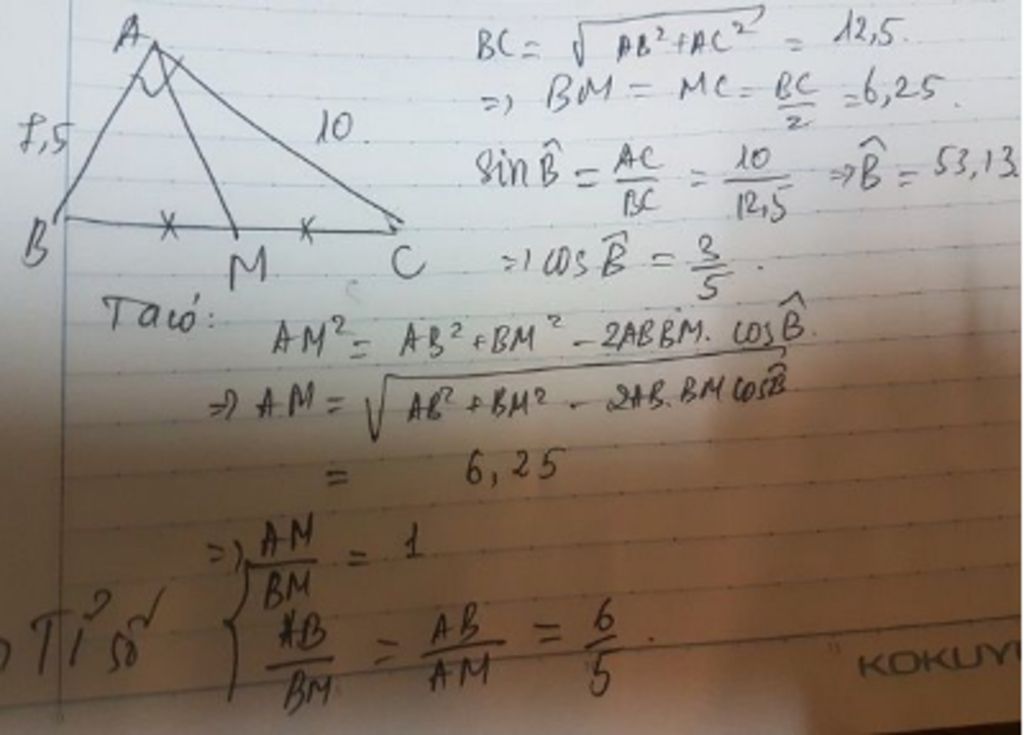 A
7,5
10
B
M
C
BC = √(AB² + AC²) = 12,5.
=> BM = MC = BC/2 = 6,25.
Sin B̂ = AC/BC = 10/12,5 => B̂ = 53,13
=> cos B̂ = 3/5.
Ta có:
AM² = AB² + BM² - 2AB BM. cos B̂.
=> AM = √(AB² + BM² - 2AB. BM cos B̂)
= 6,25
=> AM/BM = 1
Tỉ số
AB/BM = AB/AM = 6/5.
KOKUY